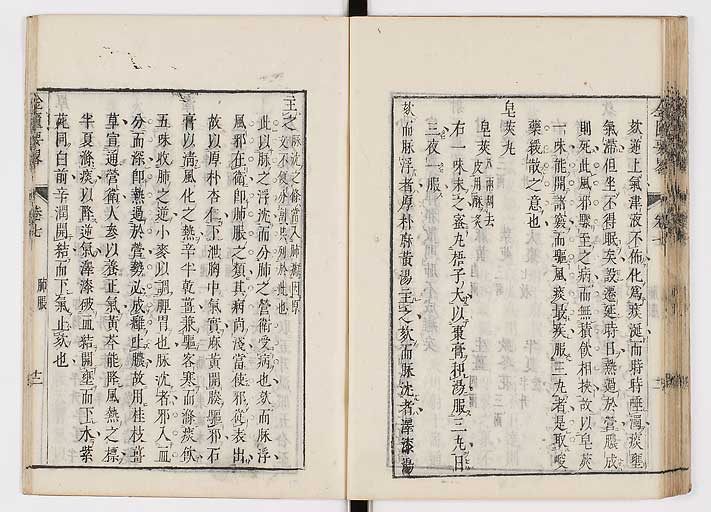 欬逆上氣津液不佈化爲痰涎而時時唾濁痰壅
氣滯但坐不得眠矣設遷延時日熱過於營膿成
則死此風邪驟至之病而無積飲相挾故以皂莢
一味能開諸竅而驅風痰最疾服三丸者是取峻
藥緩散之意也
皂莢丸
皂莢八兩刮去皮用酥炙
右一味末之蜜丸梧子大以棗膏和湯服三丸日
三夜一服
欬而脉浮者厚朴麻黃湯主之欬而脉沈者澤漆湯
主之
此以脉之浮沈而分肺之營衛受病也欬而脉浮
風邪在衛即肺脹之類其病尚淺當使邪從表出
故以厚朴杏仁下泄胸中氣實麻黃開腠驅邪石
膏以淸風化之熱辛半乾薑兼驅客寒而滌痰飲
五味收肺之逆小麥以調脾胃也脉沈者邪入血
分而深即熱過於營勢必成癰吐膿故用桂枝
草宣通營衛人參以養正氣黃芩能降風熱之標
半夏滌痰以降逆氣澤漆破血結開壅而下水紫
菀同白前辛潤開結而下氣止欬也
金匱要畧
卷七
肺脹
十二